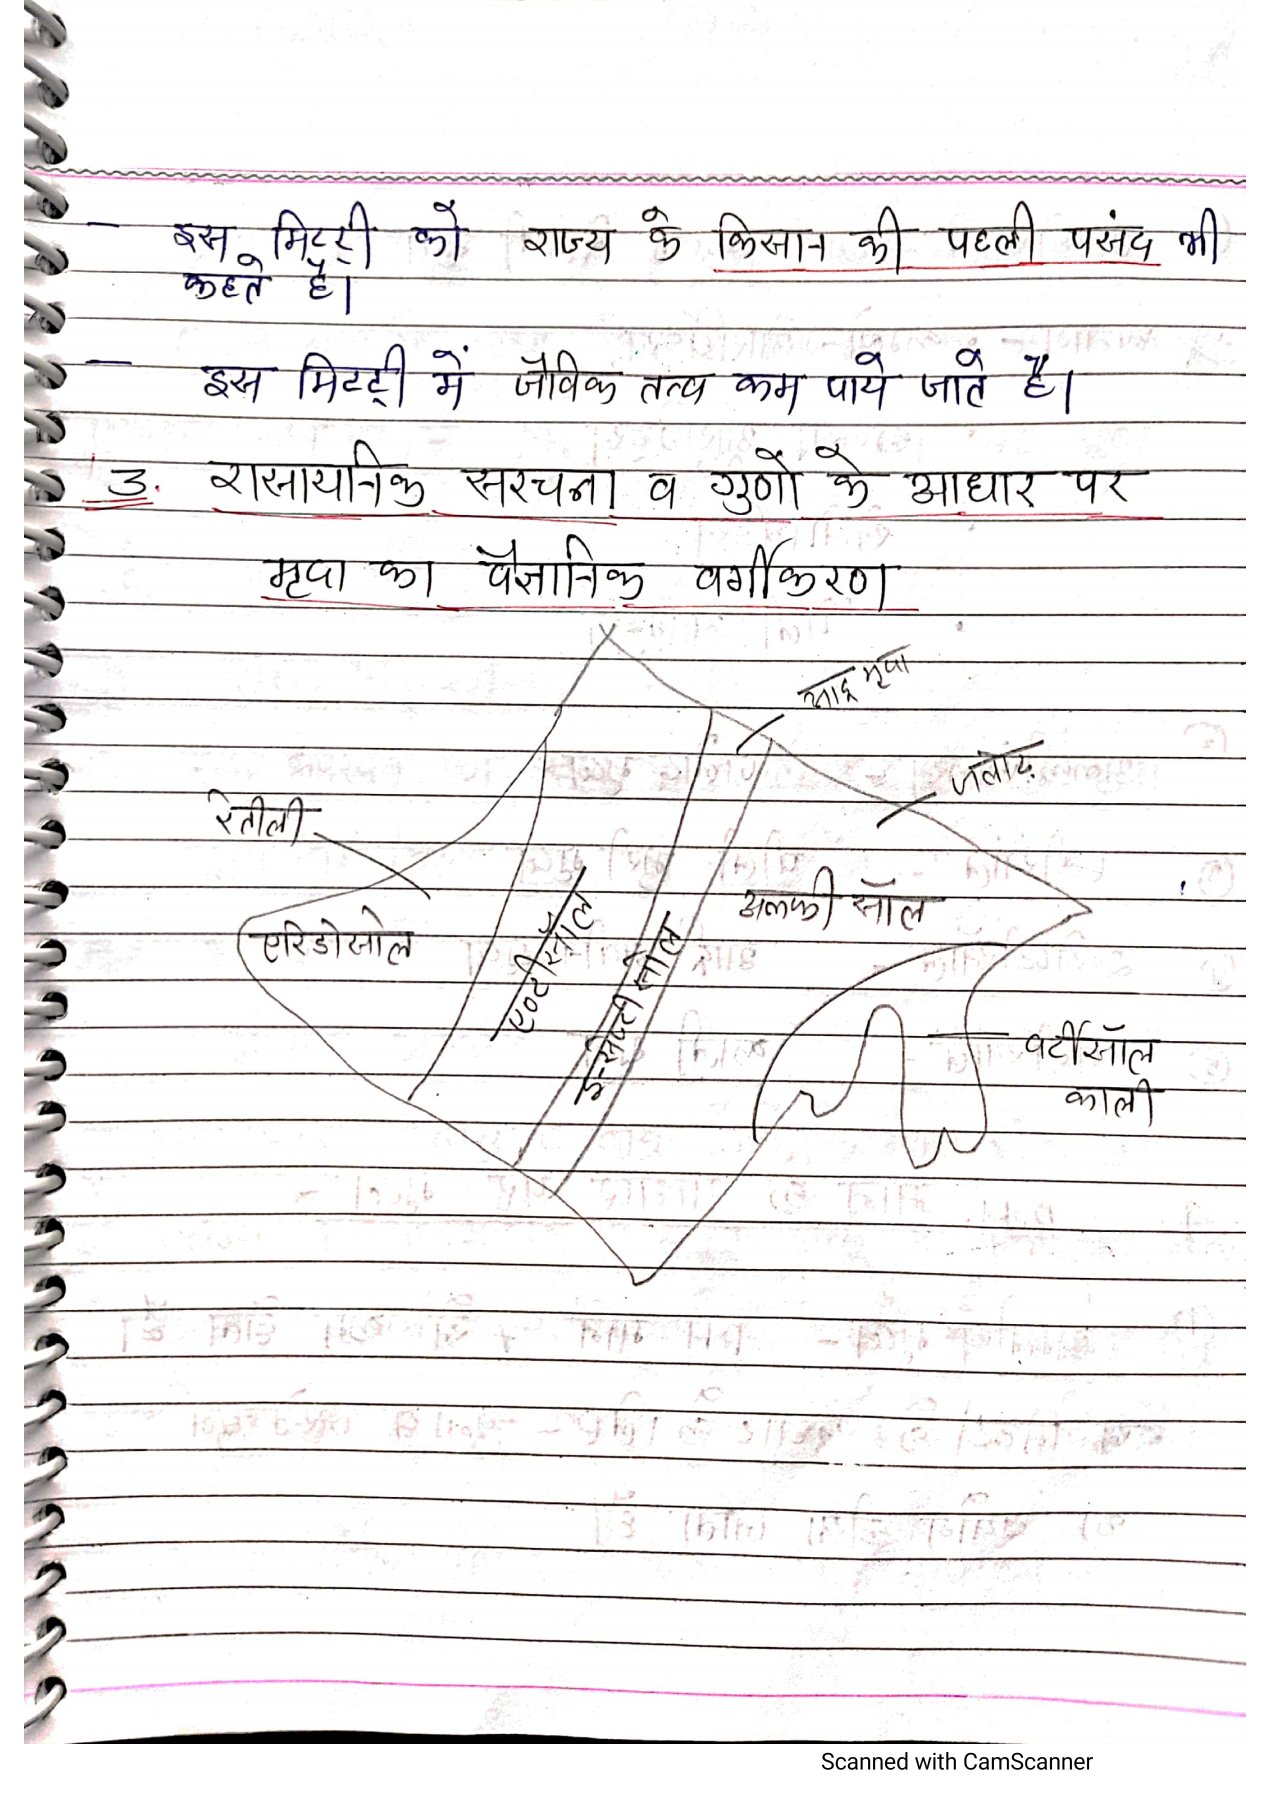 — इस मिटट्री को राज्य के किसान की पहली पसंद भी
कहते है।
— इस मिटट्री में जैविक तत्व कम पाये जाते है।
3. रासायनिक सरचना व गुणों के आधार पर
मृदा का वैज्ञानिक वर्गीकरण
आद्र मृदा
जलोढ़
रेतीली
अलफी सॉल
एरिडोसोल
एण्टीसॉल
इन्सेप्टी सोल
वर्टीसॉल
काली
Scanned with CamScanner